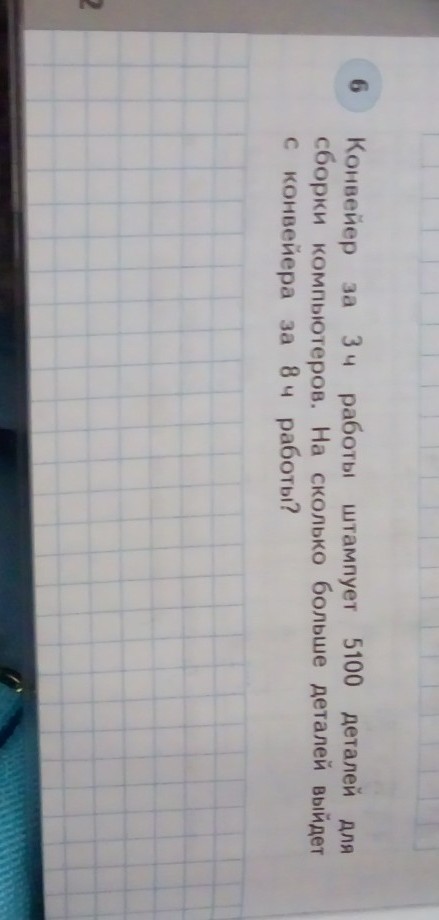 6 Конвейер за 3 ч работы штампует 5100 деталей для
сборки компьютеров. На сколько больше деталей выйдет
с конвейера за 8 ч работы?
2